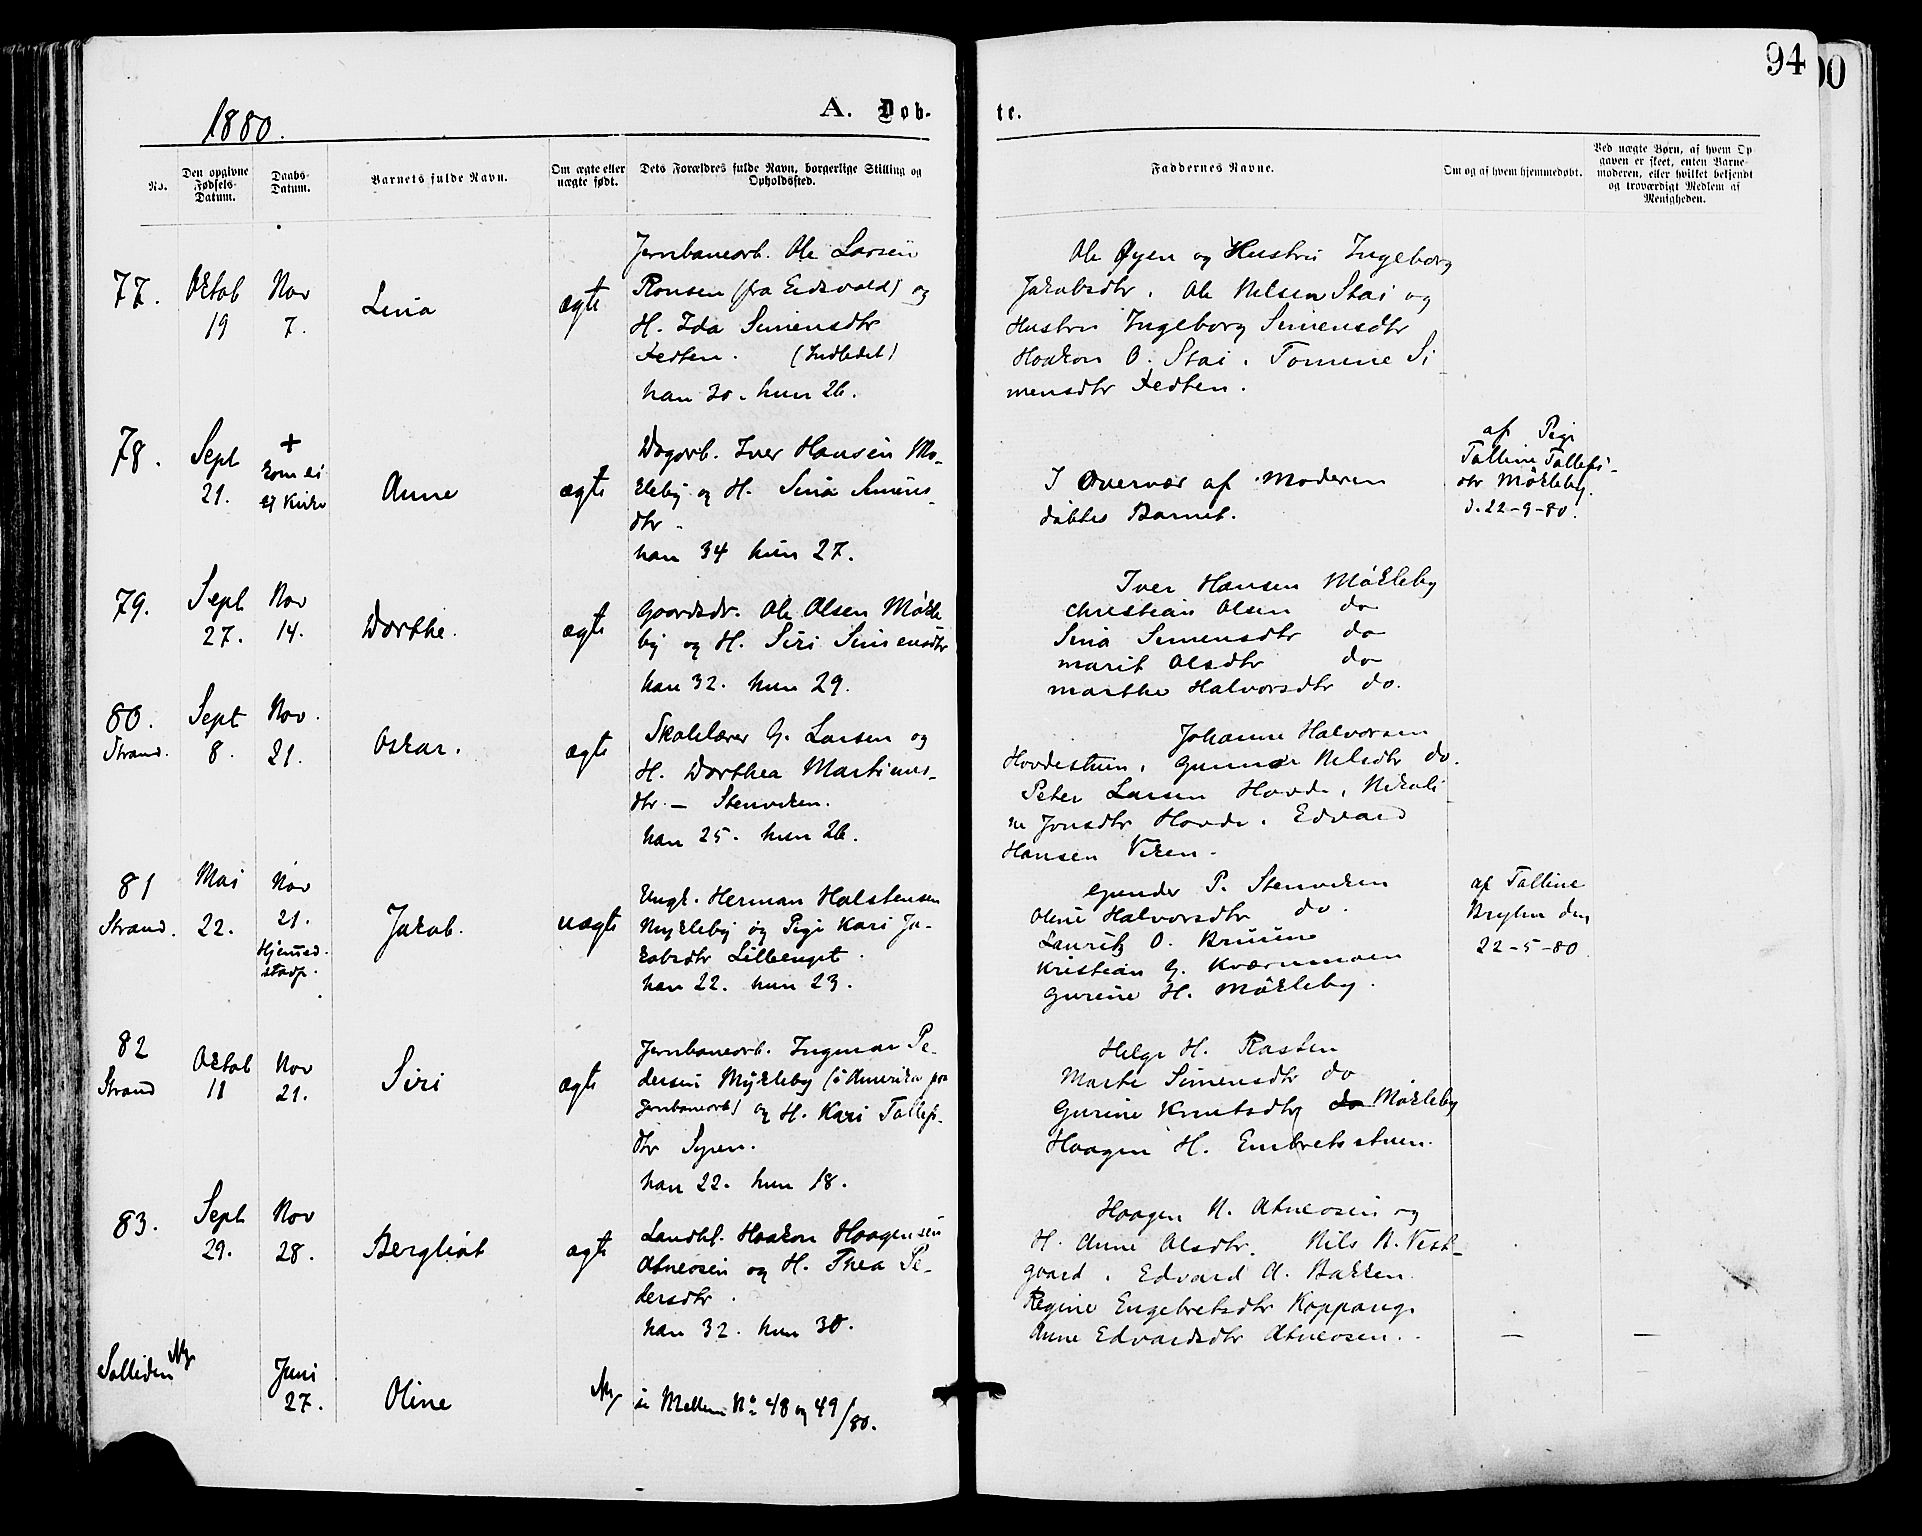 94
00
1880.
A. Døb-
te.
No.
Den opgivne
Fødsels-
Datum.
Daabs-
Datum.
Barnets fulde Navn.
Om ægte eller
uægte født.
Dets Forældres fulde Navn, borgerlige Stilling og
Opholdssted.
Faddernes Navne.
Om og af hvem hjemmedøbt.
Ved uægte Børn, af hvem Op
gaven er skeet, enten Barne-
moderen, eller hvilket bekjendt
og troværdigt Medlem af
Menigheden.
77.
Oktob
19
Nov
7.
Lina
ægte
Jernbanearb. Ole Larsen
Ronsen (fra Eidsvold) og
H. Ida Simensdtr
(Indledet)
han 30. hun 26.
Ole Øyen og Hustru Ingeborg
Jakobsdtr. Ole Nilsen Stai og
Hustru Ingeborg Simensdtr
Haakon O. Stai. Tomine Si
mensdtr
78.
Sept
21.
+
kom ei
til Kirke
Anne
ægte
Dagarb. Iver Hansen Mø-
kleby og H. Sina Simens-
dtr.
han 34 hun 27.
I Overvær af Moderen
døbtes Barnet.
af Pige
Talline Tallefs-
dtr Møkleby.
d. 22-9-80.
79.
Sept
27.
Nov
14.
Dorthe.
ægte
Gaardsdr. Ole Olsen Møkle
by og H. Siri Simensdtr
han 32. hun 29.
Iver Hansen Møkleby
Christian Olsen do
Sina Simensdtr do
Marit Olsdtr do
Marthe Halvorsdtr do.
80.
Strand.
Sept
8.
Nov.
21.
Oskar.
ægte
Skolelærer G. Larsen og
H. Dorthea Martinus-
dtr. – Stenviken.
han 25. hun 26.
Johanne Halvorsen
Hovdestuen. Gunnor Nilsdtr do.
Peter Larsen Hovde, Nikoli-
ne Jonsdtr Hovde. Edvard
Hansen Viken.
81
Strand.
Mai
22.
Nov
21.
Hjemmed.
stadf.
Jakob.
uægte
Ungk. Herman Halstensen
Mykleby og Pige Kari Ja-
kobsdtr Lilleenget.
han 22. hun 23.
Gunder P. Stenviken
Oline Halvorsdtr do.
Lauritz O. Bruune
Kristian G. Kværnmoen
Gurine H. Møkleby.
af Talline
Bryhn den
22-5-80
82
Strand
Oktob
11
Nov
21.
Siri
ægte
Jernbanearb. Ingmar Pe-
dersen Mykleby (i Amerika paa
Jernbanearb) og H. Kari Tallefs-
dtr
han 22. hun 18.
Helge H. Rasten
Marte Simensdtr do
Gurine Knutsdtr do Møkleby
Haagen H. Embretsstuen.
83.
Sept
29.
Nov
28.
Bergliot
ægte
Landhl. Haakon Haagensen
Atneosen og H. Thea Pe-
dersdtr.
han 32. hun 30.
Haagen N. Atneosen og
H. Anne Olsdtr. Nils N. Vest-
gaard. Edvard A. Bakken.
Regine Engebretsdtr Koppang.
Anne Edvardsdtr Atneosen.
Solliden
Juni
27.
Oline
se Mellem No 48 og 49/80.